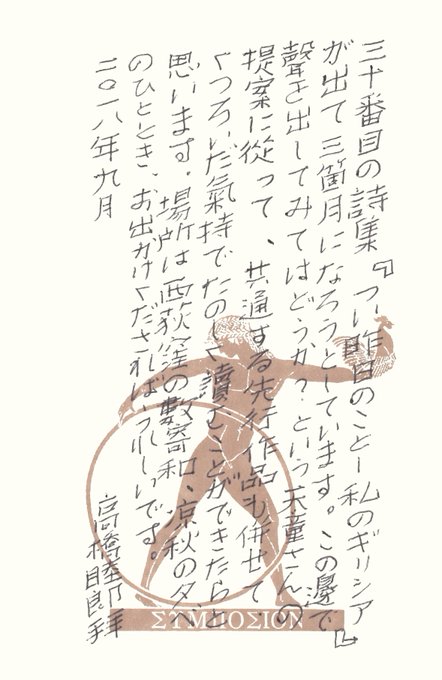 三十番目の詩集『つい昨日のことー私のギリシア』
が出て三箇月になろうとしています。この邊で
聲を出してみてはどうか?という天童さんの
提案に從って、共通する先行作品も併せて、
くつろいだ氣持でたのしく讀むことができたらと
思います。場所は西荻窪の數寄和、涼秋の夕べ
のひととき、お出かけくださればうれしいです。
二〇一八年九月
高橋睦郎拜
ΣΥΜΠΟΣΙΟΝ